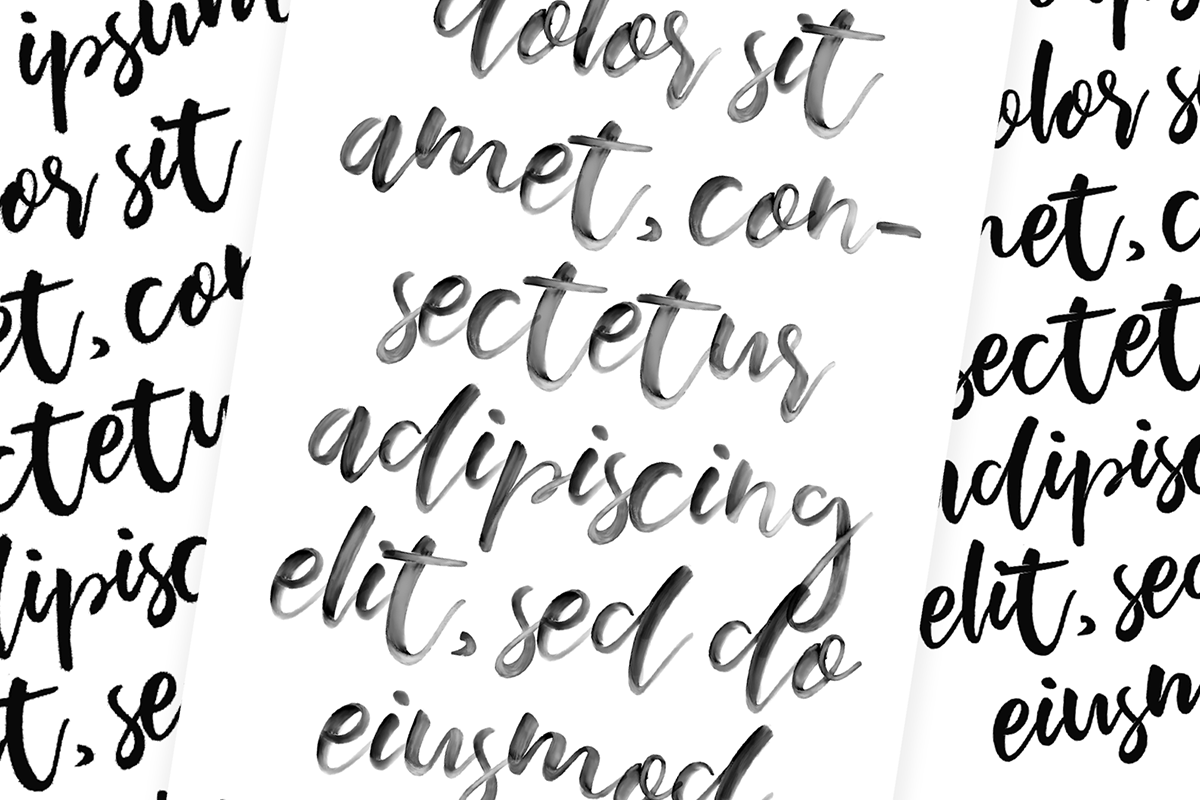 ipsum
or sit
et, con
ctetu
dipisc
t, se
dolor sit
amet, con-
sectetur
adipiscing
elit, sed do
eiusmod
olor s
net, c
sectet
adipisc
elit, sed
eiusm